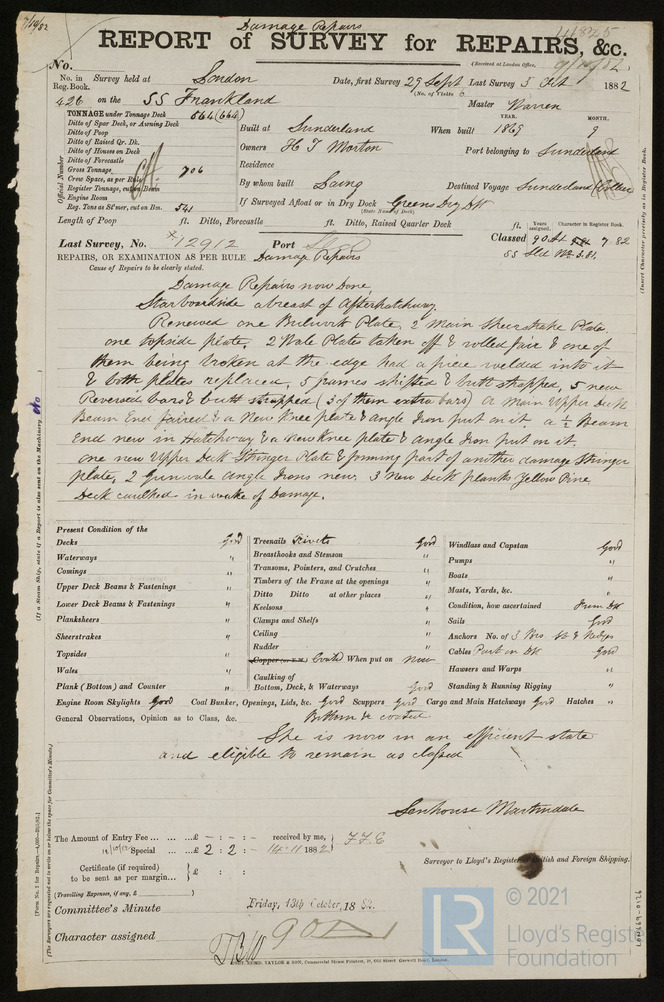 7/10/82
Damage Repairs
REPORT of SURVEY for REPAIRS, &c.
No.
(Received at London Office,
No. in Reg. Book. Survey held at London Date, first Survey 29 Sept Last Survey 5 Oct 1882
(No. of Visits 6
426 on the SS Frankland Master Warren
TONNAGE under Tonnage Deck 664 (664)
Ditto of Spar Deck, or Awning Deck
Ditto of Poop
Ditto of Raised Qr. Dk.
Ditto of Houses on Deck
Ditto of Forecastle
Gross Tonnage 706
Crew Space, as per Rule
Register Tonnage, cut on Beam
Engine Room
Reg. Tons as St'mer, cut on Bm. 541
Official Number
YEAR. MONTH.
Built at Sunderland When built 1869 9
Owners H T Morton Port belonging to Sunderland
Residence
By whom built Laing Destined Voyage Sunderland
If Surveyed Afloat or in Dry Dock Greens Dry Dk
(State Name of Dock.)
Length of Poop ft. Ditto, Forecastle ft. Ditto, Raised Quarter Deck ft.
Years assigned. Character in Register Book.
Last Survey, No. 12912 Port Classed 90 7 82
SS Sld No 3.81.
REPAIRS, OR EXAMINATION AS PER RULE Damage Repairs
Cause of Repairs to be clearly stated.
Damage Repairs now Done
Starboardside abreast of Afterhatchway.
Renewed one Bulwark Plate, 2 Main Sheerstrake Plate,
one topside plate, 2 Wale Plates taken off & rolled fair & one of
them being broken at the edge had a piece welded into it
& both plates replaced, 5 frames shifted & butt strapped, 5 new
Reversed bars & butt strapped (3 of them extra bars) a Main Upper Deck
Beam End faired & a New Knee plate & angle Iron put on it. a ½ Beam
End new in Hatchway & a new Knee plate & angle Iron put on it.
one new Upper Deck Stringer Plate & forming part of another damage Stringer
plate, 2 Gunwale angle Irons new. 3 New Deck planks Yellow Pine
Deck caulked in wake of Damage.
Present Condition of the
Decks Good
Waterways "
Comings "
Upper Deck Beams & Fastenings "
Lower Deck Beams & Fastenings "
Planksheers "
Sheerstrakes "
Topsides "
Wales "
Plank (Bottom) and Counter "
Treenails Rivets Good
Breasthooks and Stemson "
Transoms, Pointers, and Crutches "
Timbers of the Frame at the openings "
Ditto Ditto at other places "
Keelsons "
Clamps and Shelfs "
Ceiling "
Rudder "
Copper (or Y.M.) Coated When put on now
Caulking of Bottom, Deck, & Waterways Good
Windlass and Capstan Good
Pumps "
Boats "
Masts, Yards, &c. "
Condition, how ascertained From Dk
Sails Good
Anchors No. of 3 Brs
Cables Part on Dk Good
Hawsers and Warps "
Standing & Running Rigging "
Engine Room Skylights Good Coal Bunker, Openings, Lids, &c. Good Scuppers Good Cargo and Main Hatchways Good Hatches "
General Observations, Opinion as to Class, &c. Bottom coated
She is now in an efficient state
and eligible to remain as classed
Senhouse Martindale
Surveyor to Lloyd's Register British and Foreign Shipping.
The Amount of Entry Fee ... £ - : - : - received by me,
Special ... £ 2 : 2 : - 14.11 1882
Certificate (if required) to be sent as per margin... £ : :
(Travelling Expenses, if any, £
Committee's Minute Friday, 13th October, 1882.
Character assigned 90A
TAYLOR & SON, Commercial Steam Printers,
(Insert Character precisely as in Register Book.)
(If a Steam Ship, state if a Report is also sent on the Machinery
(The Surveyors are requested not to write on or below the space for Committee's Minute.)
LON669-0126
© 2021
LR
Lloyd's Register
Foundation